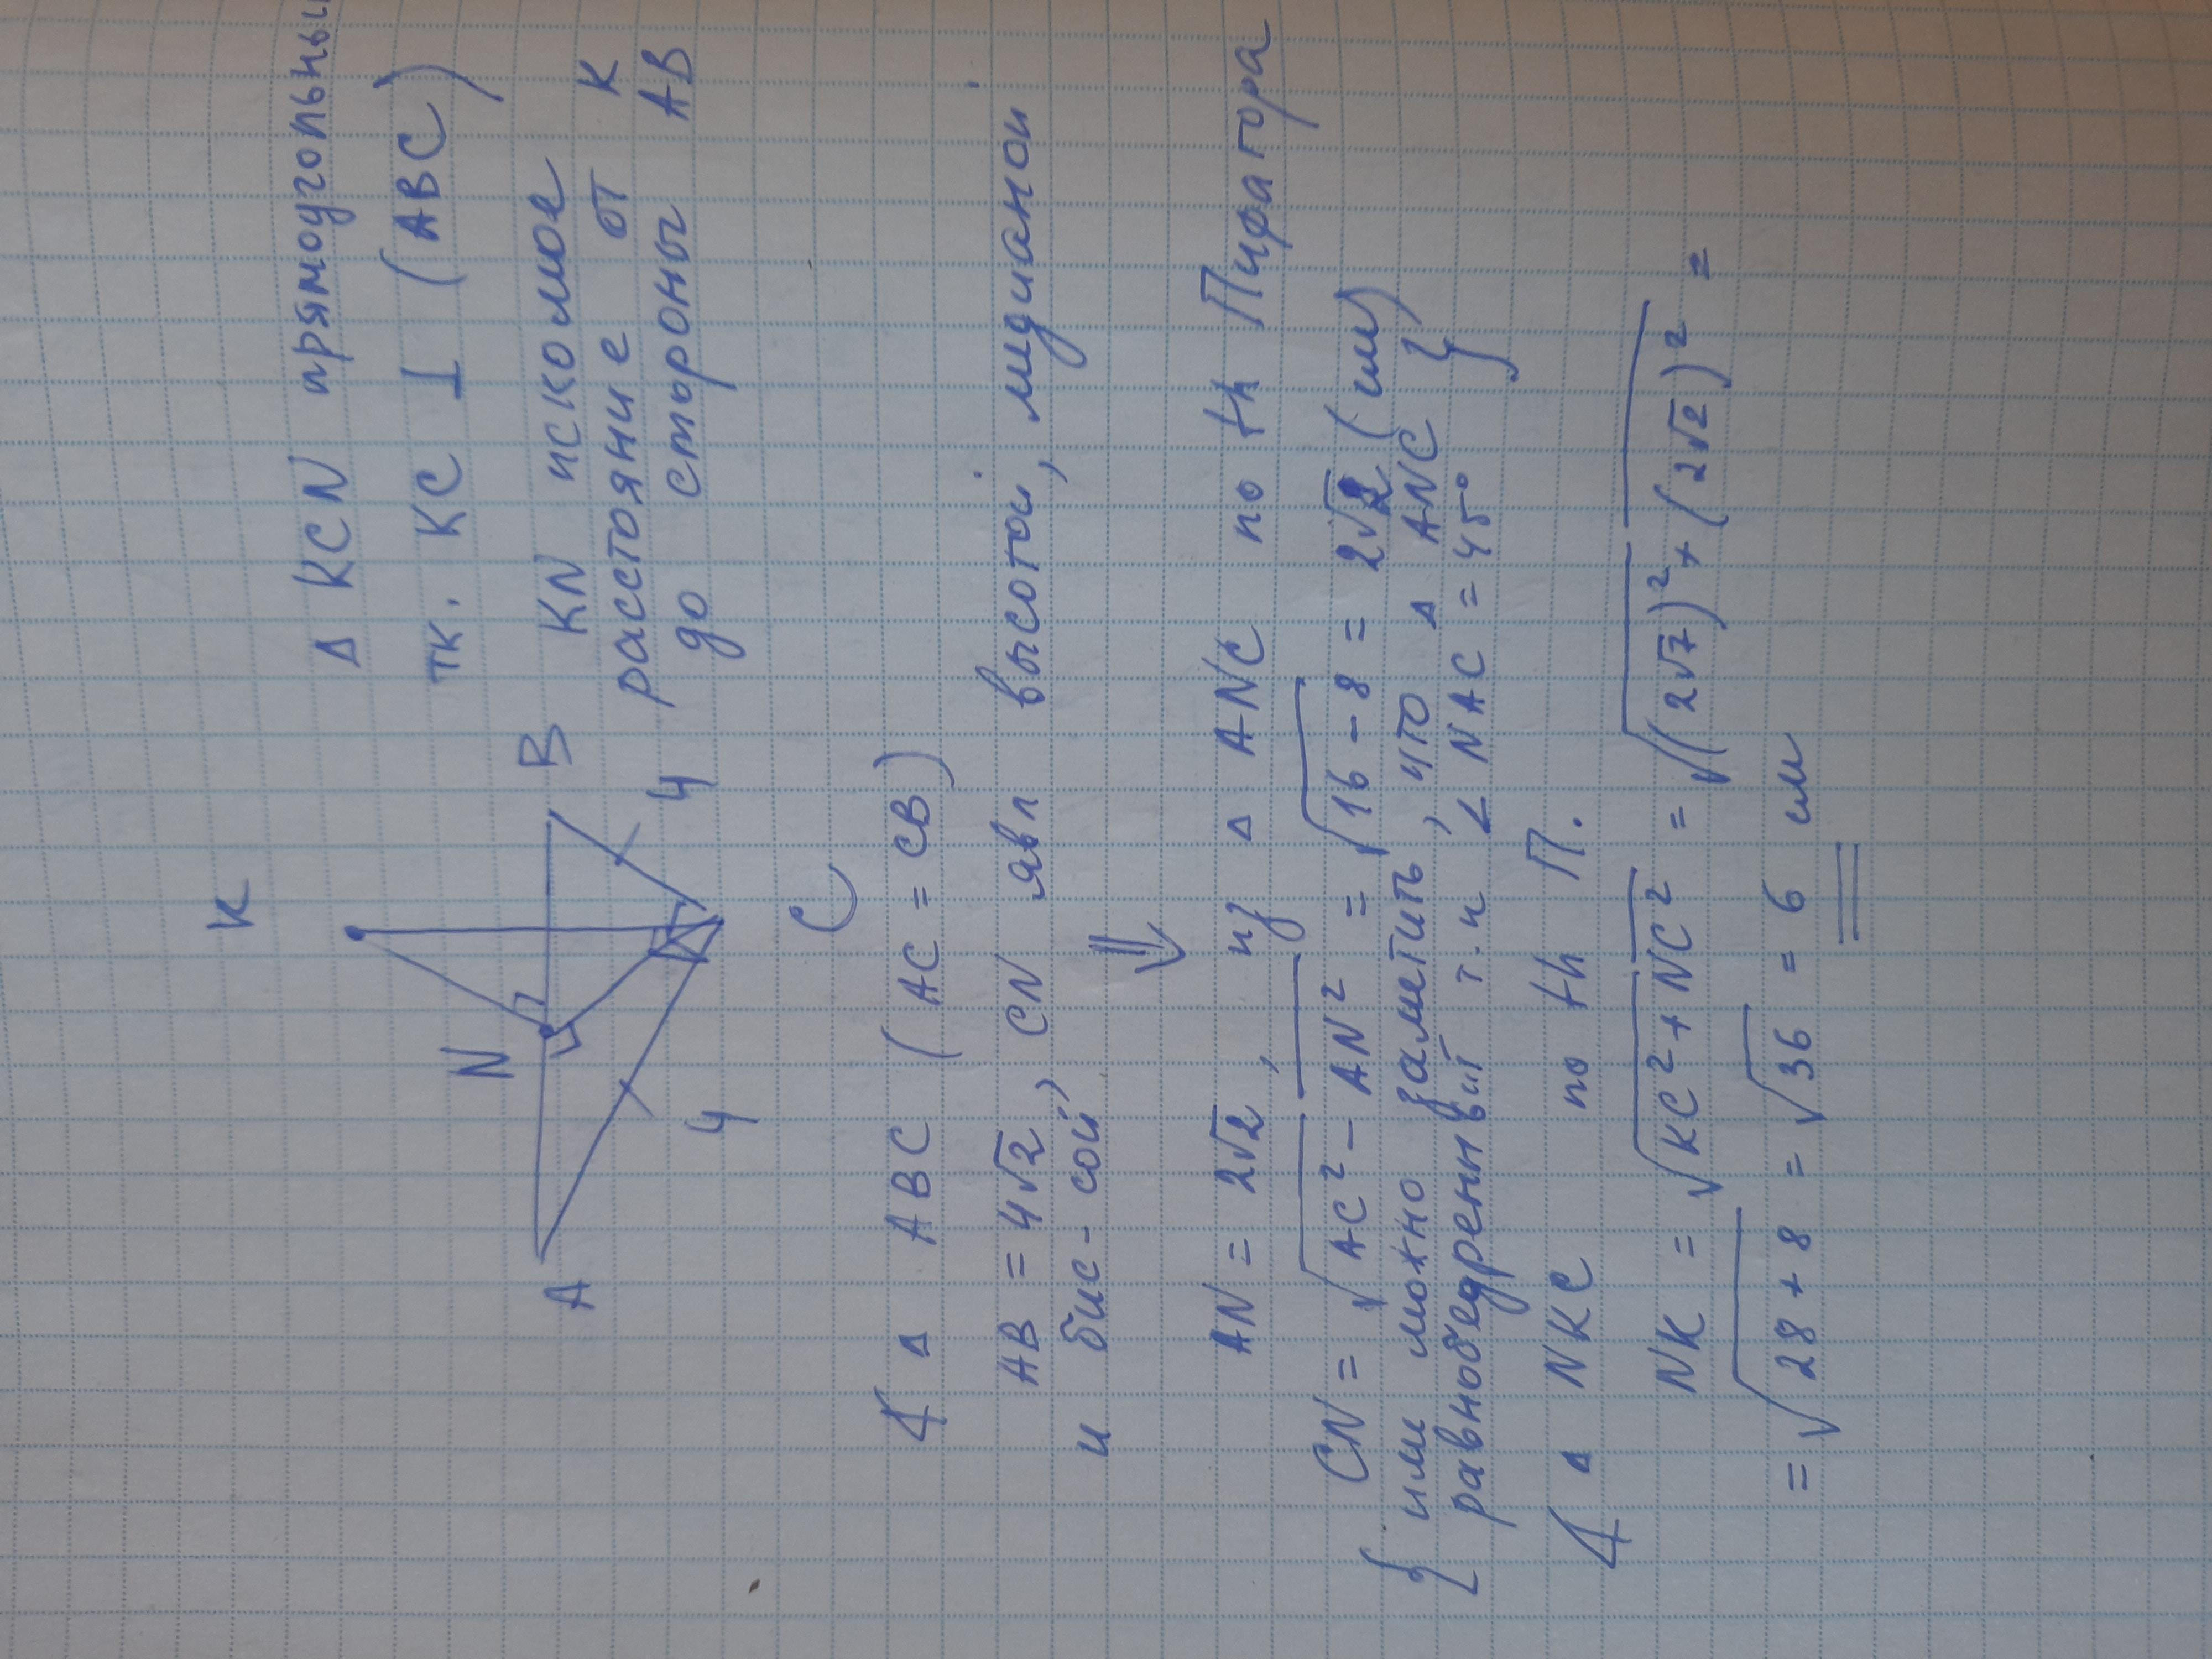 K
N
B
A
4
4
C
Δ KCN прямоугольный
тк. KC ⊥ (ABC)
KN искомое
расстояние от K
до стороны AB
Δ ABC (AC = CB)
AB = 4√2, CN явл высотой, медианой
и бис-сой
⇓
AN = 2√2, из Δ ANC по th Пифагора
CN = √AC² - AN² = √16 - 8 = 2√2 (см)
{ или можно заметить, что Δ ANC }
равнобедренный т.к ∠ NAC = 45°
Δ NKC по th П.
NK = √KC² + NC² = √(2√7)² + (2√2)² =
= √28 + 8 = √36 = 6 см